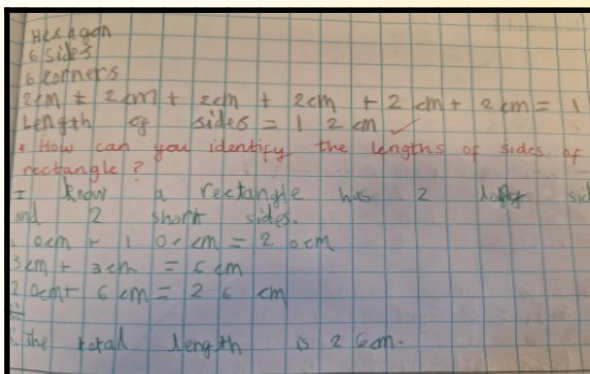 Hexagon
6 sides
6 corners
2cm + 2cm + 2cm + 2cm + 2 cm + 2cm = 1
Length of sides = 1 2 cm ✓
* How can you identify the lengths of sides of
rectangle?
I know a rectangle has 2 sid
nd 2 short sides.
0cm + 1 0 cm = 2 0cm
3cm + 3cm = 6cm
2 0cm + 6 cm = 2 6 cm
The total length is 2 6cm.